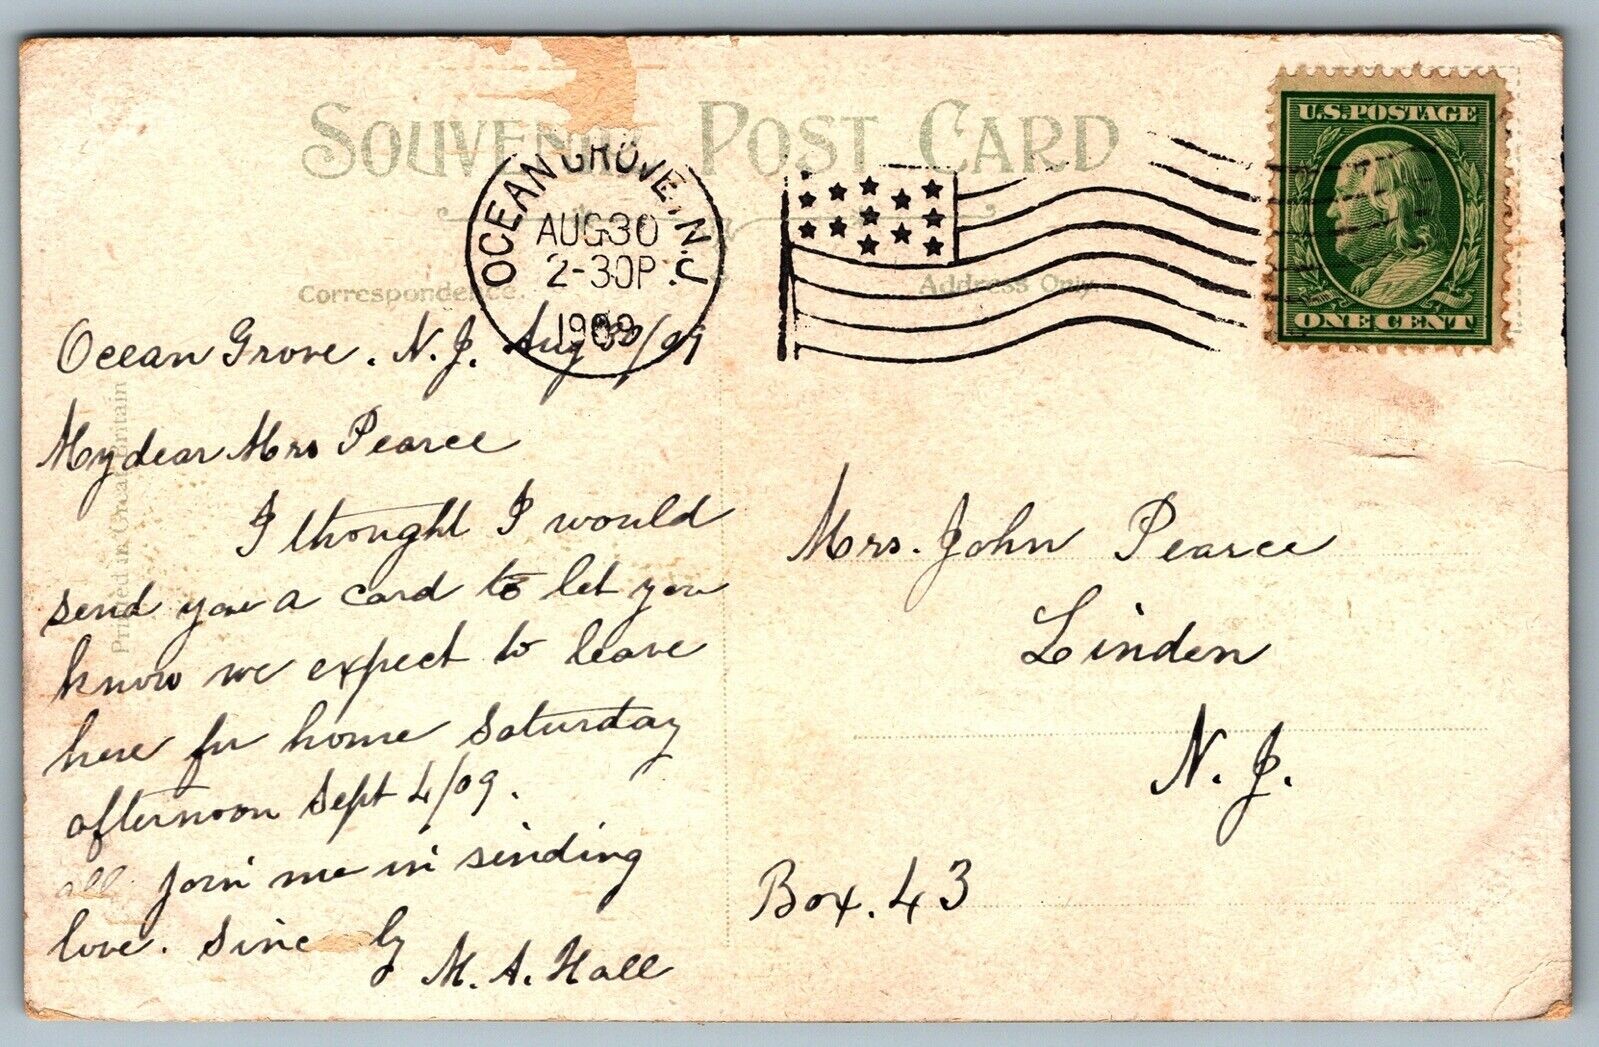 SOUVENIR POST CARD
U.S. POSTAGE
ONE CENT
OCEAN GROVE, N.J.
AUG 30
2-30P
1909
Correspondence.
Address Only.
Printed in Great Britain
Ocean Grove. N.J. Aug /09
My dear Mrs Pearce
I thought I would
send you a card to let you
know we expect to leave
here for home Saturday
afternoon Sept 4/09.
all join me in sending
love. Sinc ly
M. A. Hall
Mrs. John Pearce
Linden
N. J.
Box. 43